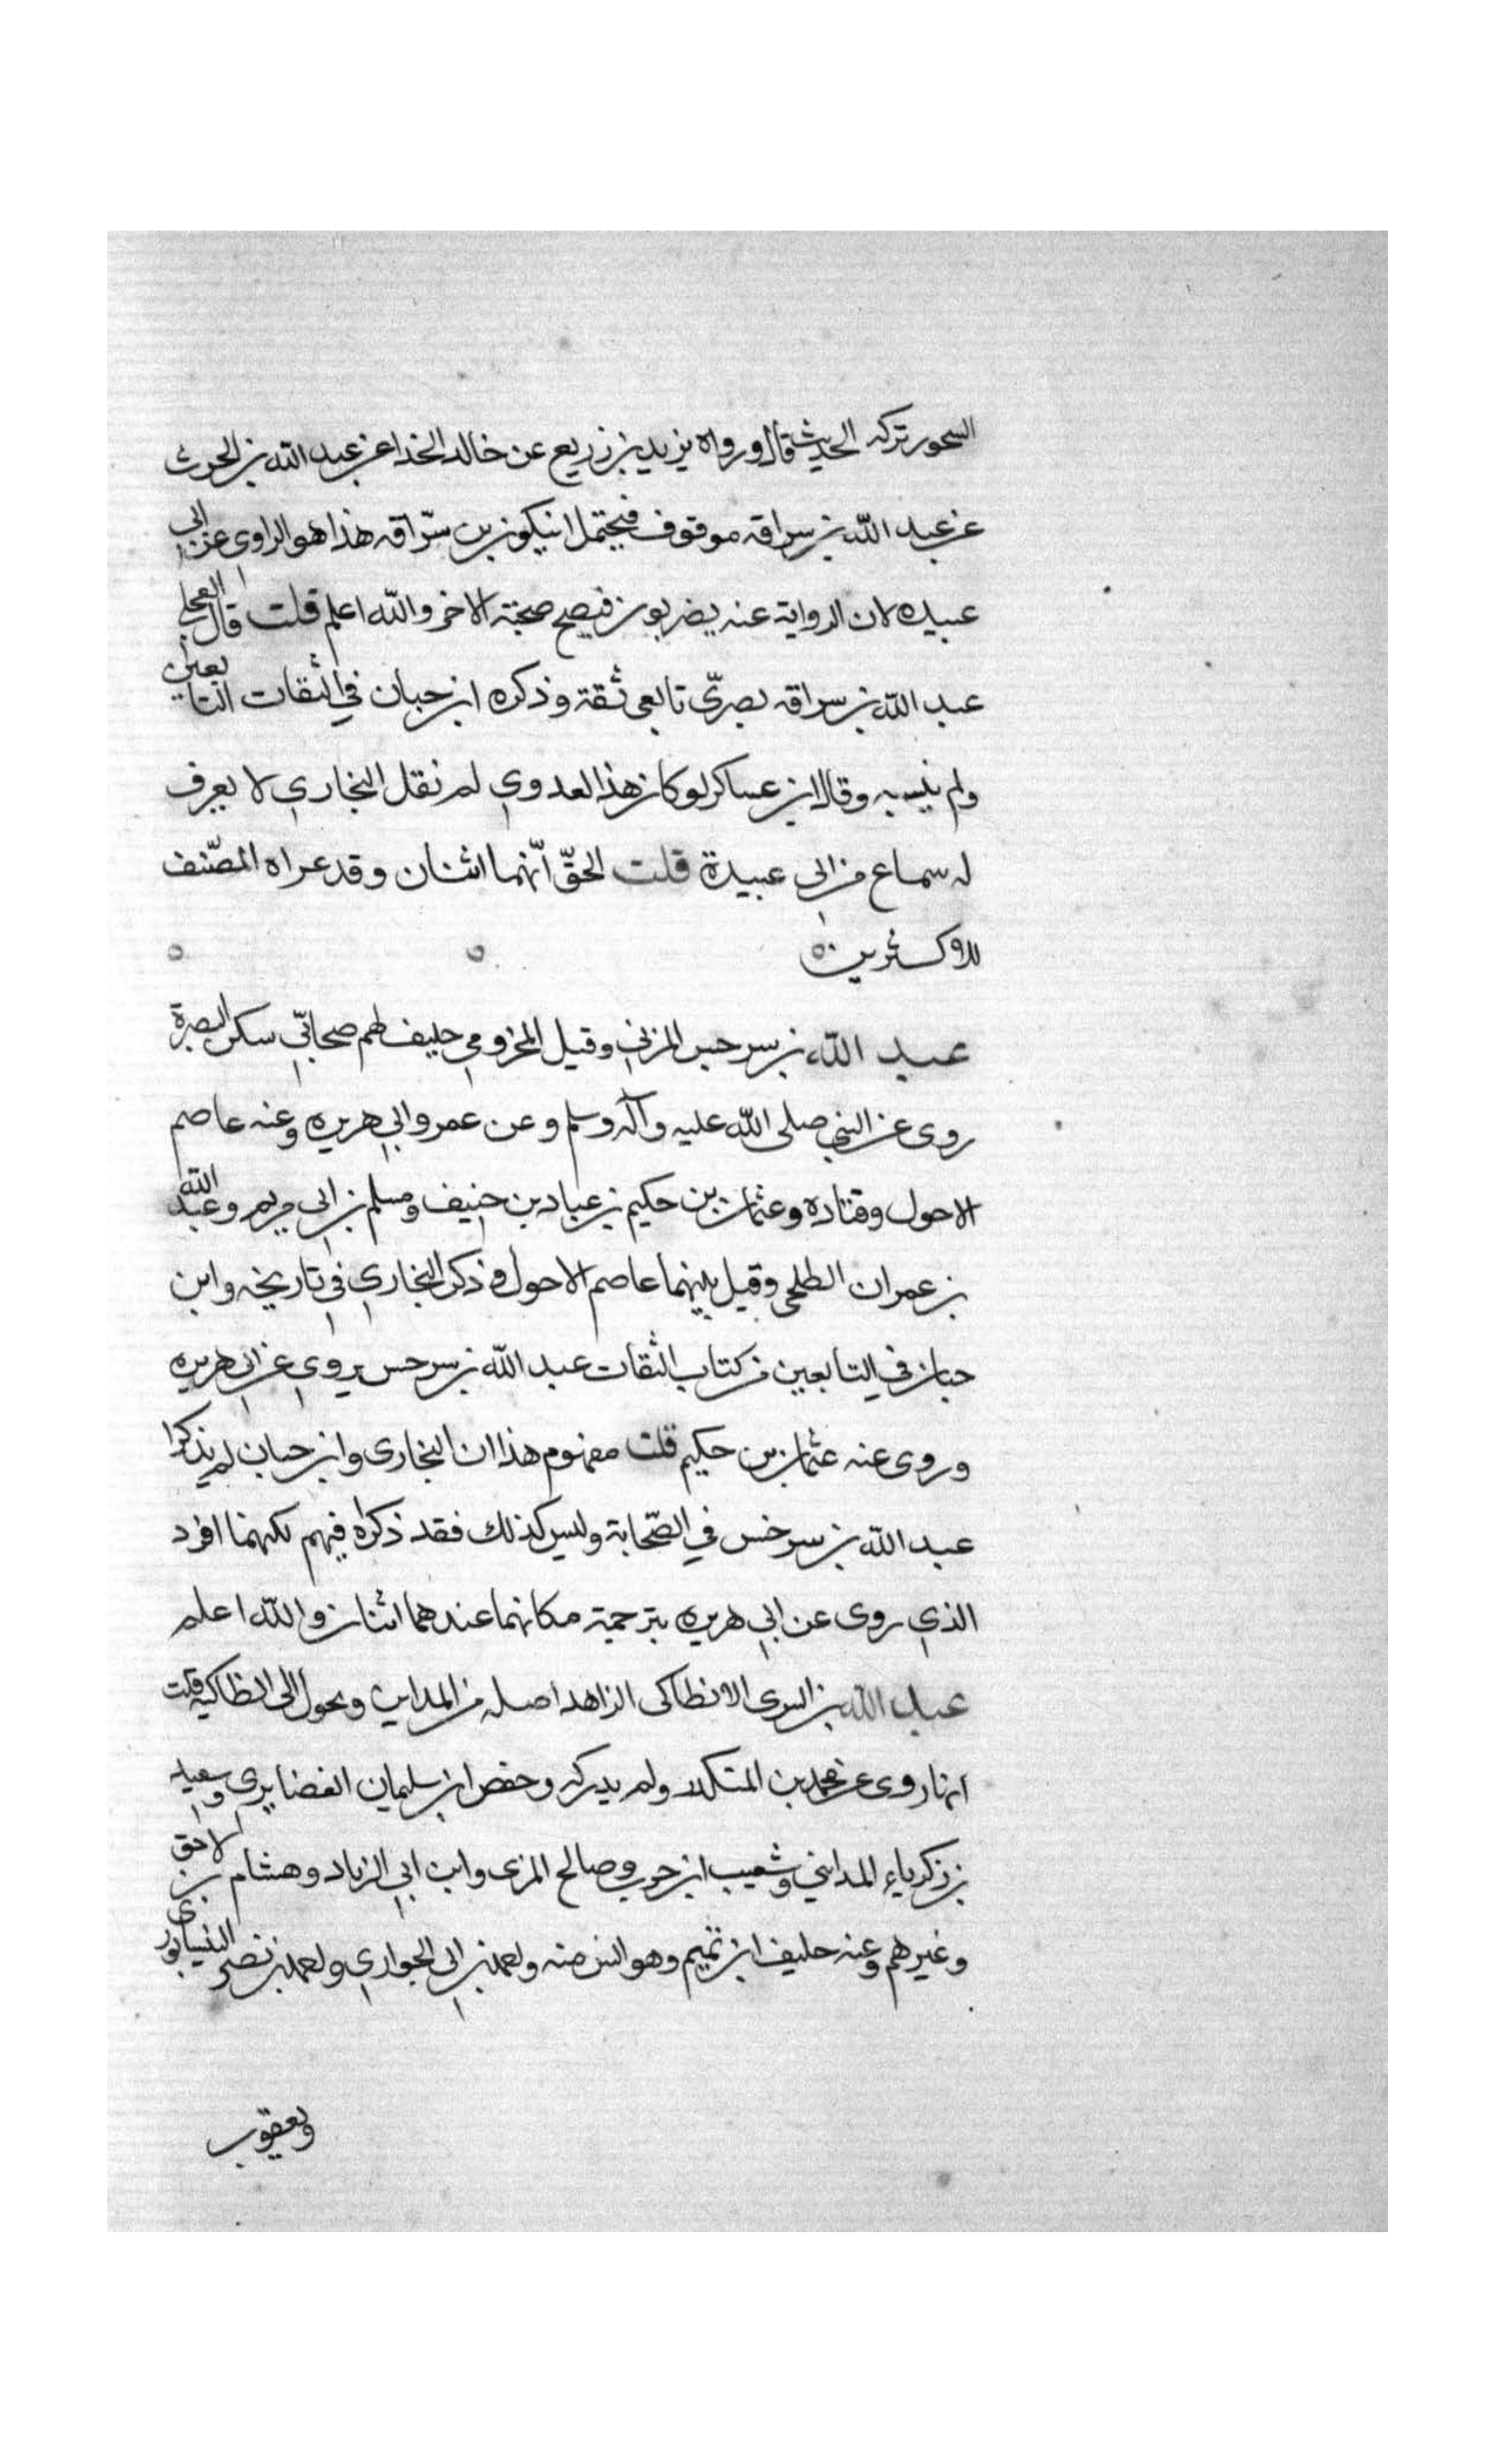 السحور تركه الحديث قال ورواه يزيد بن زريع عن خالد الخذا عن عبد الله بن الحرث
عن عبد الله بن سراقه موقوف فيحتمل ان يكون بن سراقه هذا هو الراوى عن ابي
عبيده لان الرواية عنه بصريون فيصح صحبة الاخر والله اعلم قلت قال العجلي
عبد الله بن سراقه بصرىّ تابعى ثقة وذكره ابن حبان في الثقات التابعين
ولم ينسبه وقال ابن عساكر لو كان هذا العدوي لم نقل البخاري لا يعرف
له سماع من ابي عبيدة قلت الحقّ أنّهما اثنان وقد عزاه المصّنف
للاكثرين
عبد الله بن سرجس المزني وقيل المخزومي حليف لهم صحابيّ سكن البصرة
روى عن النبي صلى الله عليه وآله وسلم وعن عمر وابي هريره وعنه عاصم
الاحول وقتاده وعثمان بن حكيم بن عباد بن حنيف ومسلم بن ابي مريم وعبد الله
بن عمران الطلحى وقيل بينهما عاصم الاحول وذكر البخاري في تاريخه وابن
حبان في التابعين من كتاب الثقات عبد الله بن سرجس يروي عن ابي هريره
وروى عنه عثمان بن حكيم قلت مفهوم هذا ان البخارى وابن حبان لم يذكرا
عبد الله بن سرخس في الصّحابة وليس كذلك فقد ذكراه فيهم لكنهما افرد
الذي روى عن ابي هريره بترجمة مكانهما عندهما اثنان والله اعلم
عبد الله بن السرى الانطاكى الزاهد اصله من المداين وتحول الى انطاكيه قلت
انما روى عن محمد بن المنكدر ولم يدركه وحفص ابن سليمان الغضايرى وسعيد
بن زكرياء المدايني وشعيب ابن حرب وصالح المزى وابن ابي الزناد وهشام بن لاحق
وغيرهم وعنه خليف ابن تميم وهو اسن منه واحمد بن ابي الحواري واحمد بن نصر النيسابورى
ويعقوب